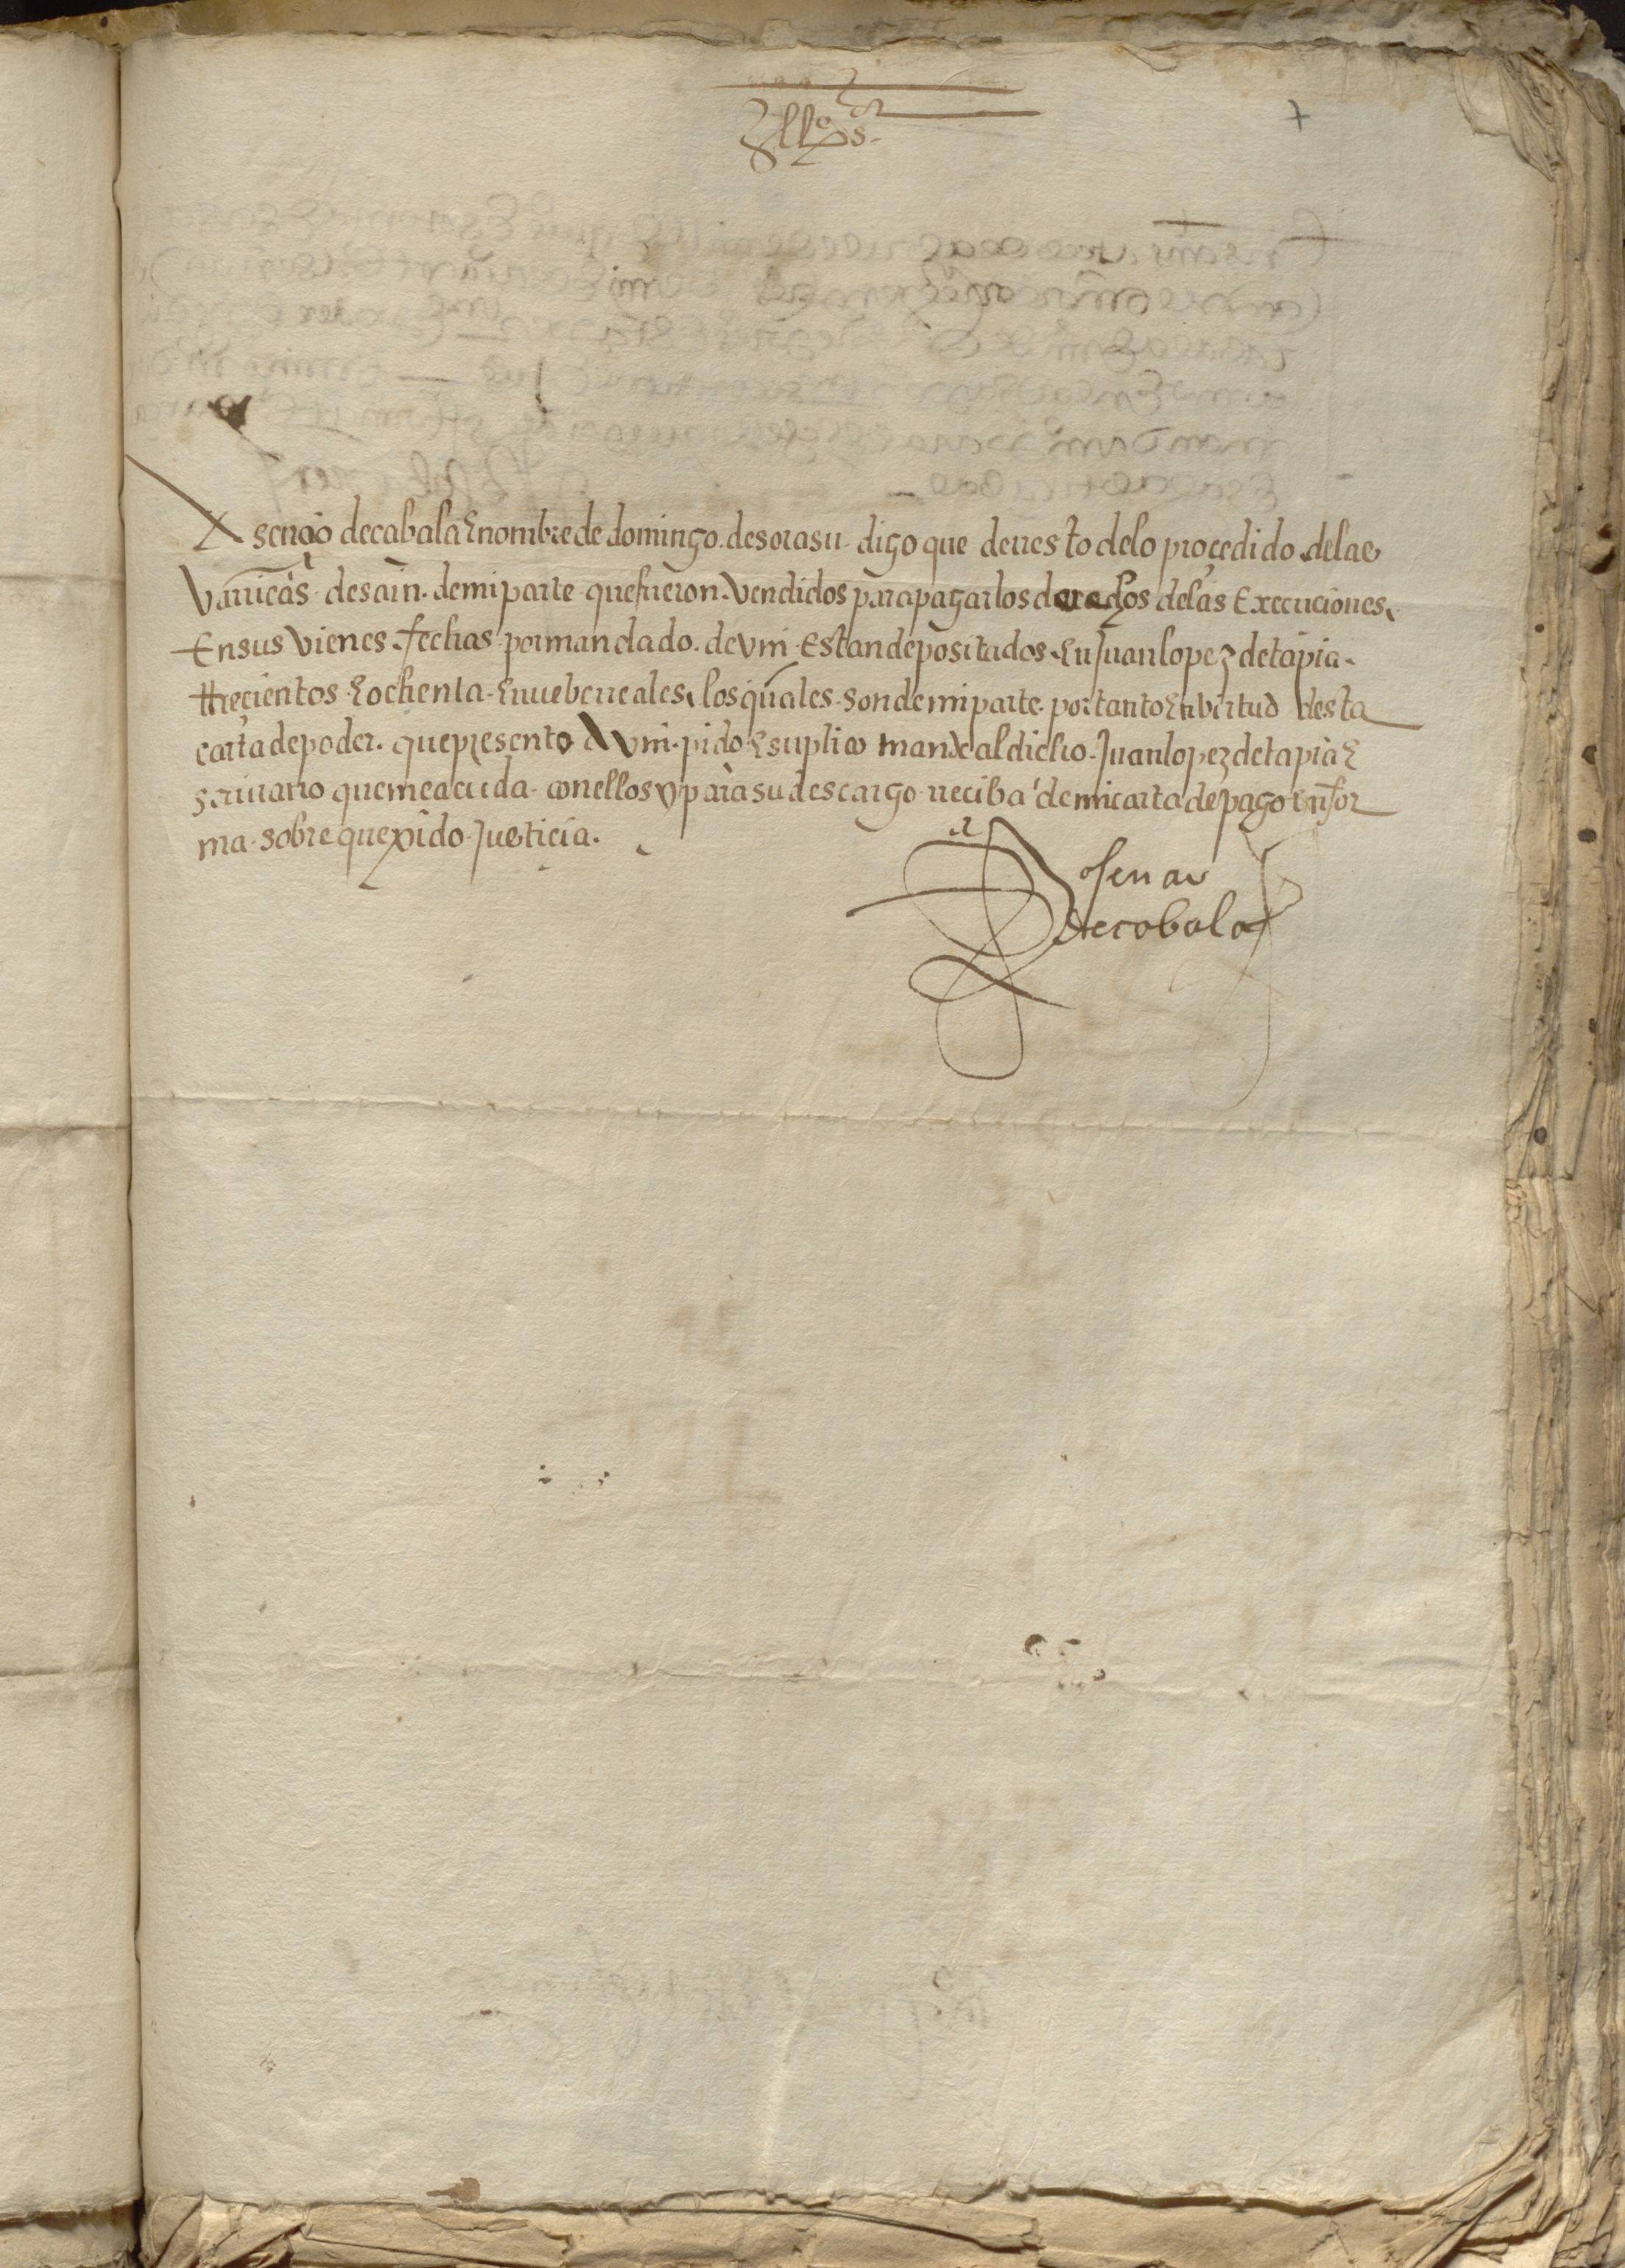 Ille s.or
Asençio de cabala En nombre de domingo. de sorasu. digo que de rresto de lo proçedido. de las
varricas de sain. de mi parte que fueron. vendidos para pagar los derechos de las Execuciones
En sus vienes. fechas por mandado. de vm. Estan depositados. En Juan lopez de tapia.
trecientos E ochenta E nuebe rreales, los quales son de mi parte. por tanto En birtud desta
carta de poder. que presento A vm. pido E suplico mande al dicho. Juan lopez de tapia E
scriuano que me acuda. con ellos y para su descargo rreciba de mi carta de pago En for
ma. sobre que pido Justicia.
de cabala